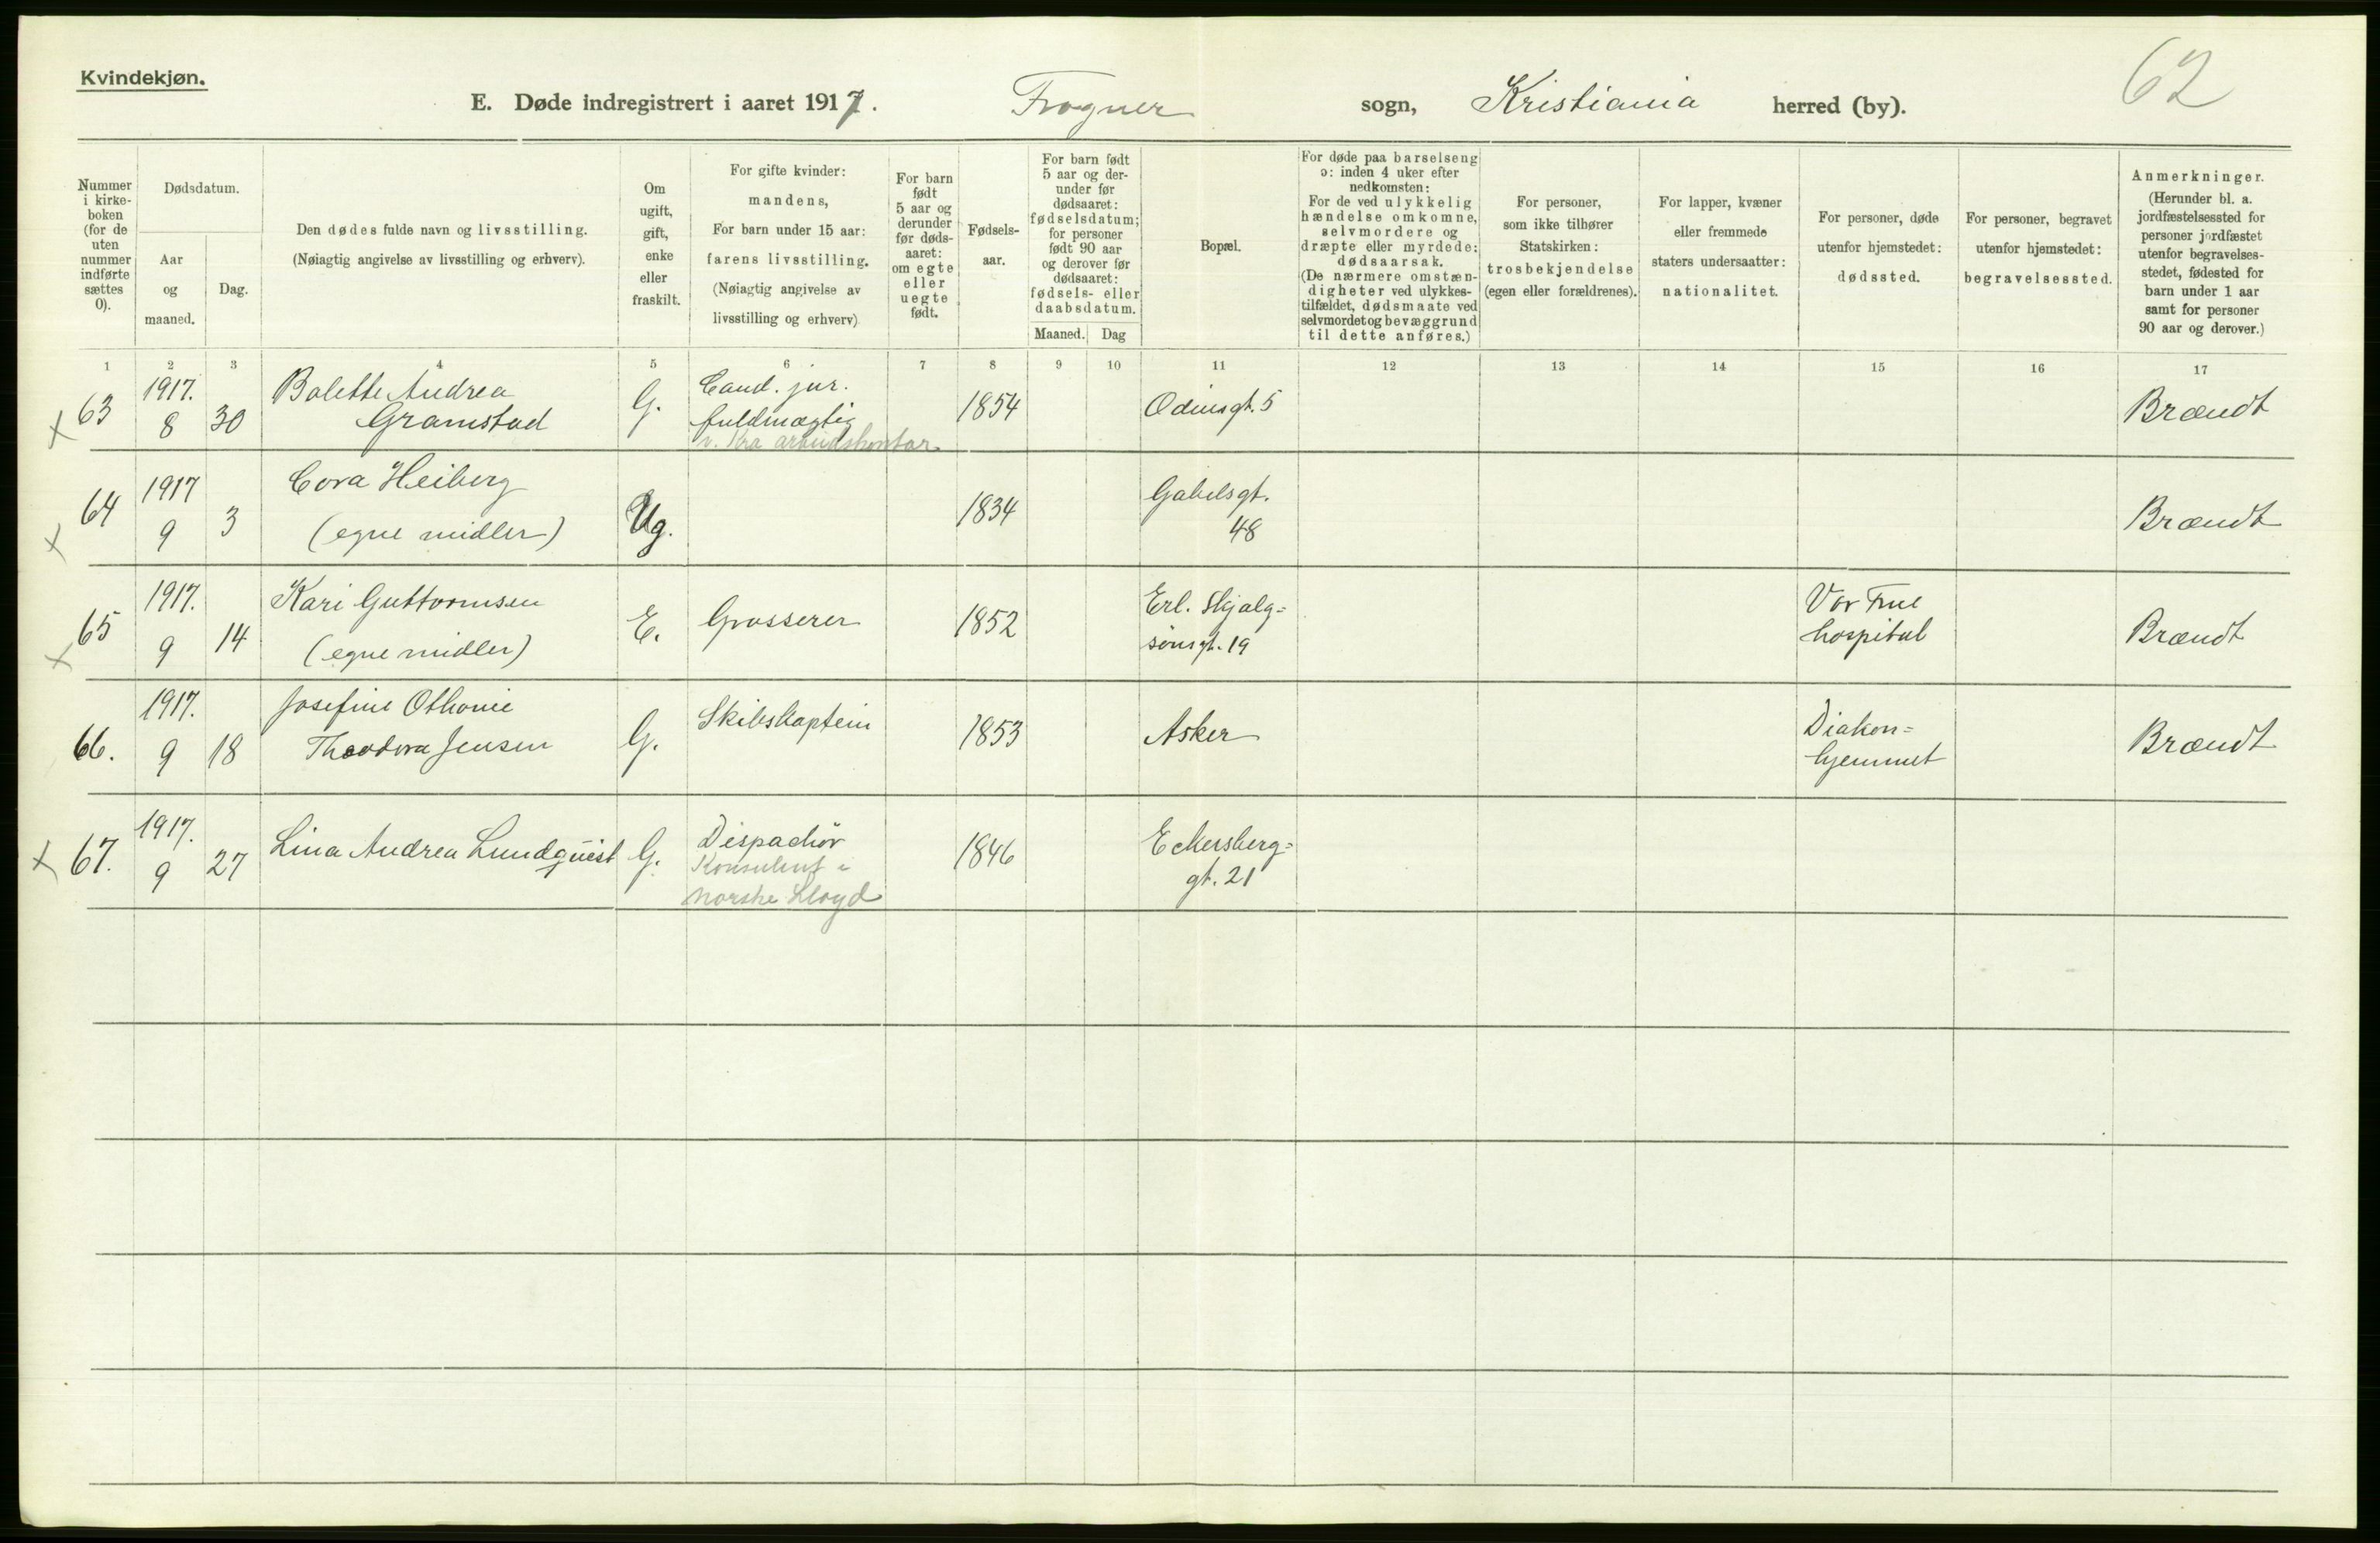 Kvindekjøn.
62
E. Døde indregistrert i aaret 1917. Frogner sogn, Kristiania herred (by).
Nummer i kirke-boken (for de uten nummer indførte sættes 0).
Dødsdatum.
Aar og maaned.
Dag.
Den dødes fulde navn og livsstilling.
(Nøiagtig angivelse av livsstilling og erhverv).
Om ugift, gift, enke eller fraskilt.
For gifte kvinder: mandens,
For barn under 15 aar: farens livsstilling.
(Nøiagtig angivelse av livsstilling og erhverv)
For barn født 5 aar og derunder før døds-aaret: om egte eller uegte født.
Fødsels-aar.
For barn født 5 aar og der-under før dødsaaret: fødselsdatum; for personer født 90 aar og derover før dødsaaret: fødsels- eller daabsdatum.
Maaned. Dag
Bopæl.
For døde paa barselseng ɔ: inden 4 uker efter nedkomsten:
For de ved ulykkelig hændelse omkomne, selvmordere og dræpte eller myrdede: dødsaarsak.
(De nærmere omstæn-digheter ved ulykkes-tilfældet, dødsmaate ved selvmordet og bevæggrund til dette anføres.)
For personer, som ikke tilhører Statskirken: trosbekjendelse (egen eller forældrenes).
For lapper, kvæner eller fremmede staters undersaatter: nationalitet.
For personer, døde utenfor hjemstedet: dødssted.
For personer, begravet utenfor hjemstedet: begravelsessted.
Anmerkninger.
(Herunder bl. a. jordfæstelsessted for personer jordfæstet utenfor begravelses-stedet, fødested for barn under 1 aar samt for personer 90 aar og derover.)
1 2 3 4 5 6 7 8 9 10 11 12 13 14 15 16 17
x 63 1917. 8 30 Bolette Andrea Gramstad G. Cand. jur. fuldmægtig v. Kra arbeidskontor 1854 Odinsgt. 5 Brændt
x 64 1917 9 3 Cora Heiberg (egne midler) Ug. 1834 Gabelsgt. 48 Brændt
x 65 1917. 9 14 Kari Guttormsen (egne midler) E. Grosserer 1852 Erl. Skjalg=sønsgt. 19 Vor Frue hospital Brændt
66. 1917. 9 18 Josefine Othonie Theodora Jensen G. Skibskaptein 1853 Asker Diakon=hjemmet Brændt
x 67. 1917. 9 27 Lina Andrea Lundquist G. Dispachør Konsulent i Norske Lloyd 1846 Eckersberg=gt. 21